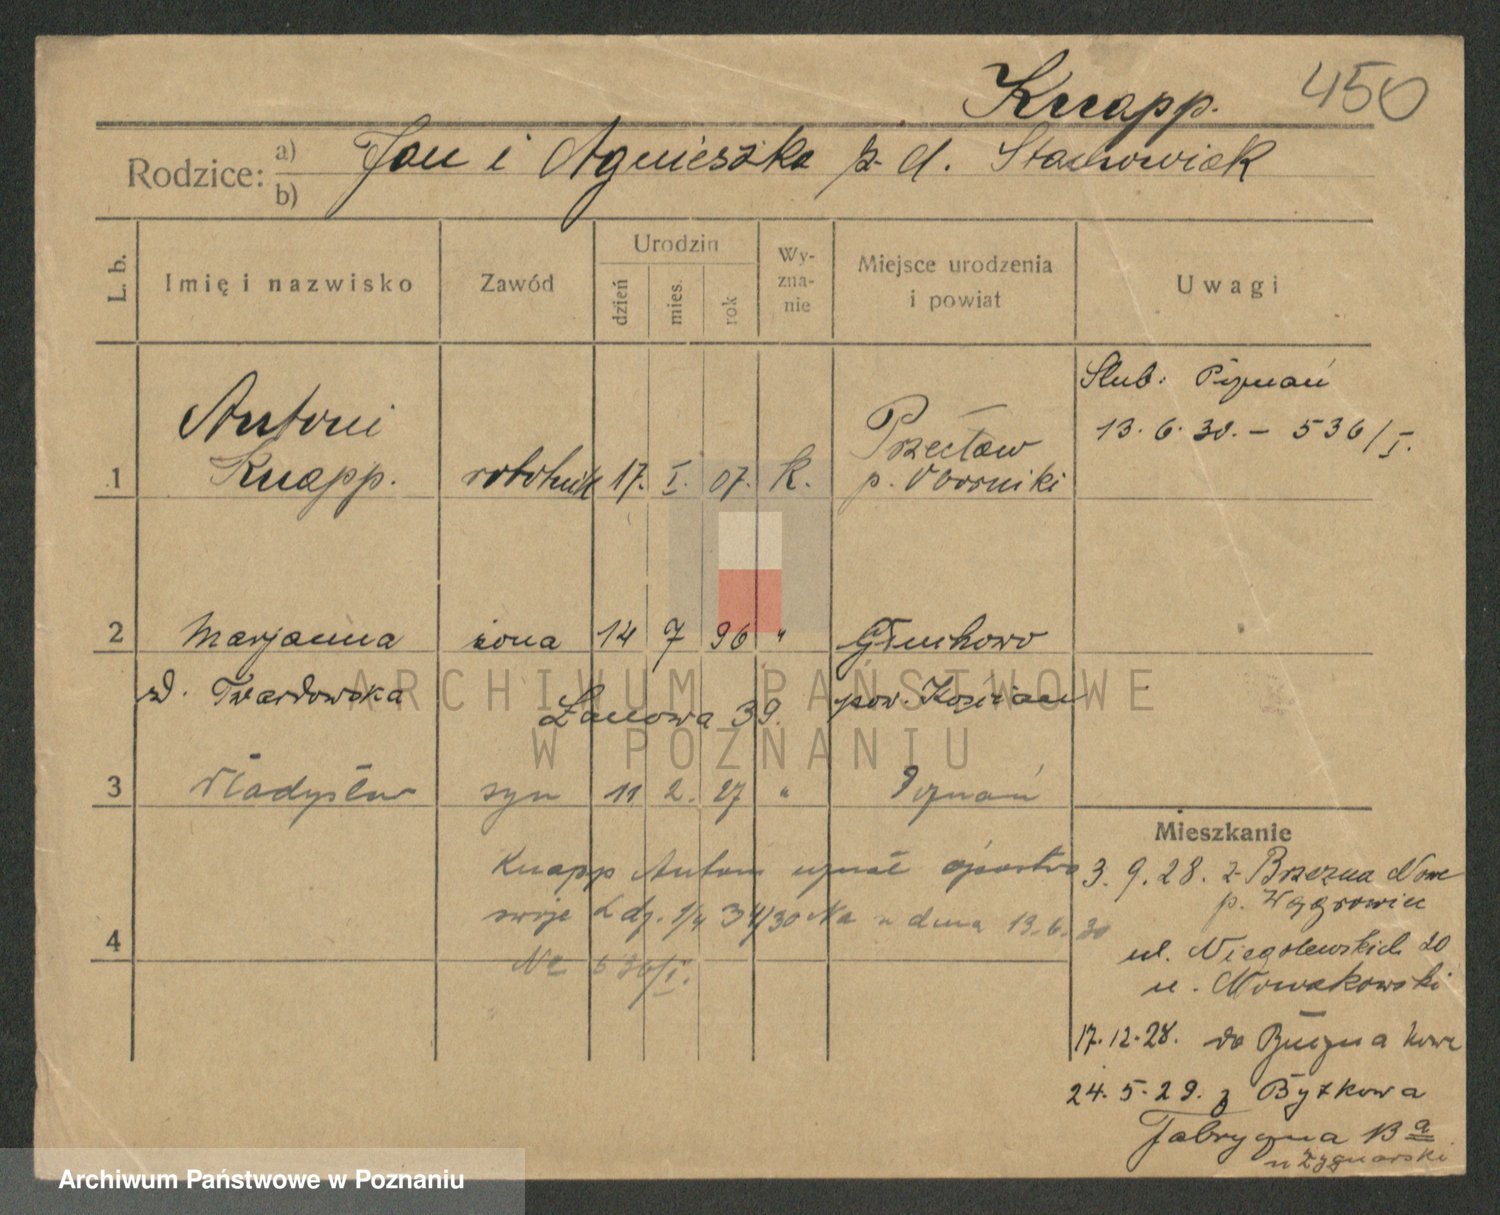 Knapp. 450
Rodzice: a) b) Jan i Agnieszka z d. Stachowiak
L. b. Imię i nazwisko Zawód Urodzin dzień mies. rok Wy-zna-nie Miejsce urodzenia i powiat Uwagi
Ślub: Poznań
13. 6. 30. – 536/I.
1 Antoni Knapp. robotnik 17. I. 07. k. Przecław p. Oborniki
2 Marjanna żona 14 7 96 " Głuchowo
z d. Twardowska pow. Kościan
Łanowa 39.
3 Władysław syn 11 2. 27 " Poznań
Knapp Antoni uznał ojcostwo
swoje 34/30 z dnia 13.6.30
Nr 536/I.
4
Mieszkanie
3. 9. 28. z Brzezna Nowe
p. Wągrowiec
ul. Niegolewskich 20
u. Nowakowski
17. 12. 28. do
24. 5. 29. z Bytkowa
Fabryczna 13 a
u
ARCHIWUM PAŃSTWOWE
W POZNANIU
Archiwum Państwowe w Poznaniu